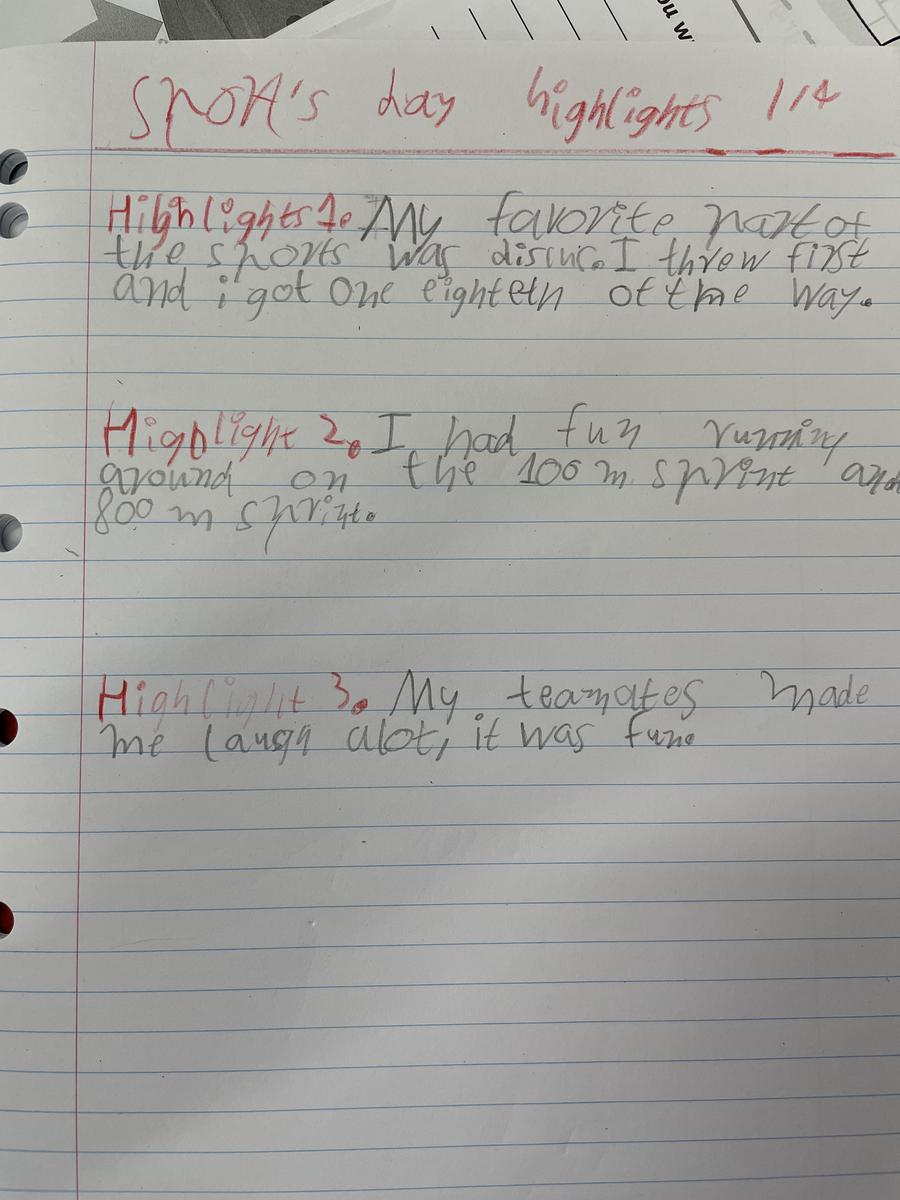 ou w
Sport's day highlights 1/4
Highlights 1. My favorite part of
the sports was discuc. I threw first
and i got one eighteth of the way.
Highlight 2. I had fun running
around on the 100 m sprint and
800 m sprint.
Highlight 3. My teamates made
me laugh alot, it was fun.